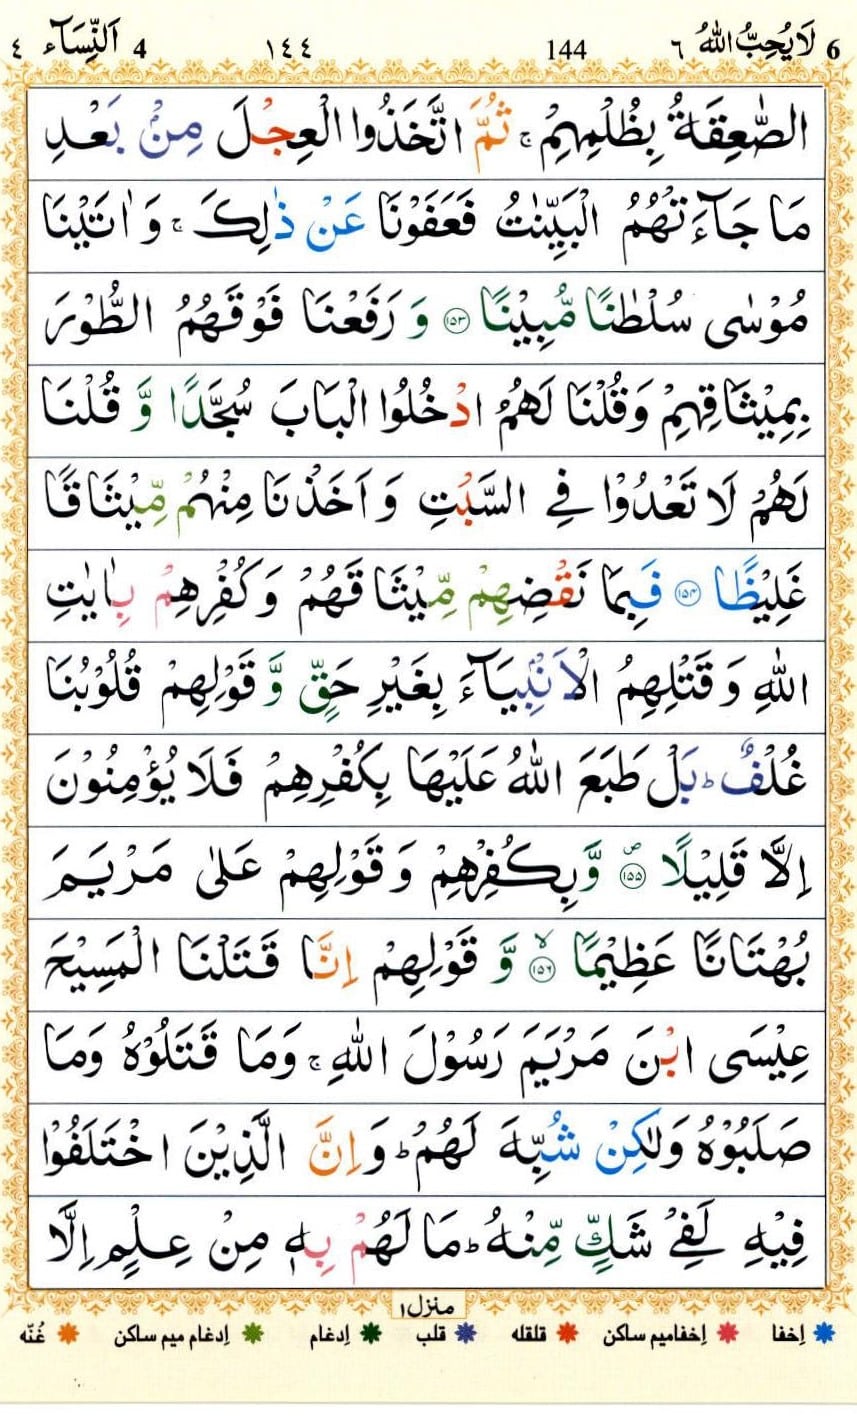 6 لَا يُحِبُّ اللّٰهُ ٦ 144 ١٤٤ 4 اَلنِّسَآء ٤
الصّٰعِقَةُ بِظُلْمِهِمْ ۚ ثُمَّ اتَّخَذُوا الْعِجْلَ مِنْۢ بَعْدِ
مَا جَآءَتْهُمُ الْبَيِّنٰتُ فَعَفَوْنَا عَنْ ذٰلِكَ ۚ وَاٰتَيْنَا
مُوْسٰى سُلْطٰنًا مُّبِيْنًا ۝١٥٣ وَرَفَعْنَا فَوْقَهُمُ الطُّوْرَ
بِمِيْثَاقِهِمْ وَقُلْنَا لَهُمُ ادْخُلُوا الْبَابَ سُجَّدًا وَّقُلْنَا
لَهُمْ لَا تَعْدُوْا فِي السَّبْتِ وَاَخَذْنَا مِنْهُمْ مِّيْثَاقًا
غَلِيْظًا ۝١٥٤ فَبِمَا نَقْضِهِمْ مِّيْثَاقَهُمْ وَكُفْرِهِمْ بِاٰيٰتِ
اللّٰهِ وَقَتْلِهِمُ الْاَنْۢبِيَآءَ بِغَيْرِ حَقٍّ وَّقَوْلِهِمْ قُلُوْبُنَا
غُلْفٌ ؕ بَلْ طَبَعَ اللّٰهُ عَلَيْهَا بِكُفْرِهِمْ فَلَا يُؤْمِنُوْنَ
اِلَّا قَلِيْلًا ۝١٥٥ۖ وَّبِكُفْرِهِمْ وَقَوْلِهِمْ عَلٰى مَرْيَمَ
بُهْتَانًا عَظِيْمًا ۝١٥٦ۙ وَّقَوْلِهِمْ اِنَّا قَتَلْنَا الْمَسِيْحَ
عِيْسَى ابْنَ مَرْيَمَ رَسُوْلَ اللّٰهِ ۚ وَمَا قَتَلُوْهُ وَمَا
صَلَبُوْهُ وَلٰكِنْ شُبِّهَ لَهُمْ ؕ وَاِنَّ الَّذِيْنَ اخْتَلَفُوْا
فِيْهِ لَفِيْ شَكٍّ مِّنْهُ ؕ مَا لَهُمْ بِهٖ مِنْ عِلْمٍ اِلَّا
منزل ١
اِخفا اِخفامیم ساکن قلقله قلب اِدغام اِدغام میم ساکن غُنّه